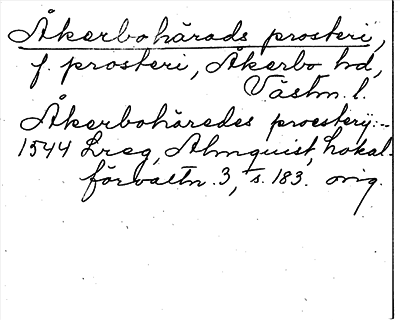 Åkerbohärads prosteri,
f. prosteri, Åkerbo hd,
Västm. l.
Åkerbohäredes proesterij:-
1544 Lreg, Almquist, Lokal-
förvaltn. 3, s. 183. orig.